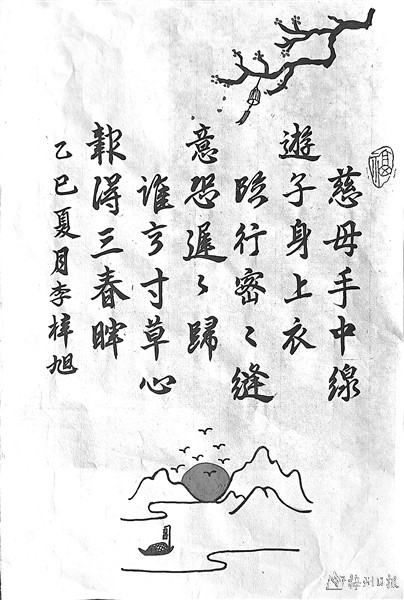 慈母手中線
遊子身上衣
临行密々縫
意恐遲々歸
誰言寸草心
報得三春晖
乙巳夏月李梓旭
福
梅州日报